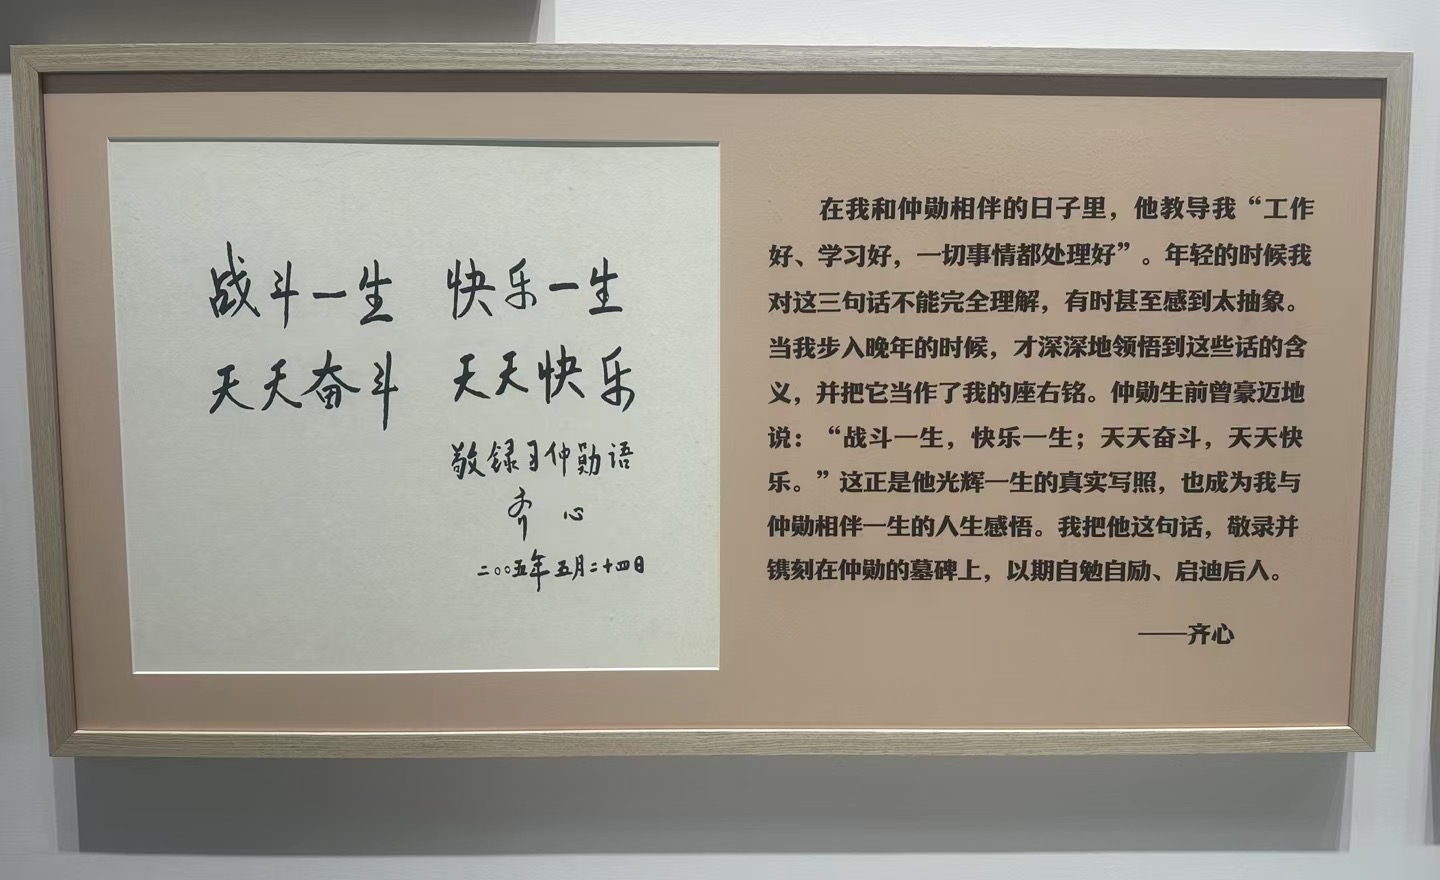 战斗一生 快乐一生
天天奋斗 天天快乐
敬录习仲勋语
齐 心
二〇〇五年五月二十四日
在我和仲勋相伴的日子里，他教导我“工作
好、学习好，一切事情都处理好”。年轻的时候我
对这三句话不能完全理解，有时甚至感到太抽象。
当我步入晚年的时候，才深深地领悟到这些话的含
义，并把它当作了我的座右铭。仲勋生前曾豪迈地
说：“战斗一生，快乐一生；天天奋斗，天天快
乐。”这正是他光辉一生的真实写照，也成为我与
仲勋相伴一生的人生感悟。我把他这句话，敬录并
镌刻在仲勋的墓碑上，以期自勉自励、启迪后人。
——齐心